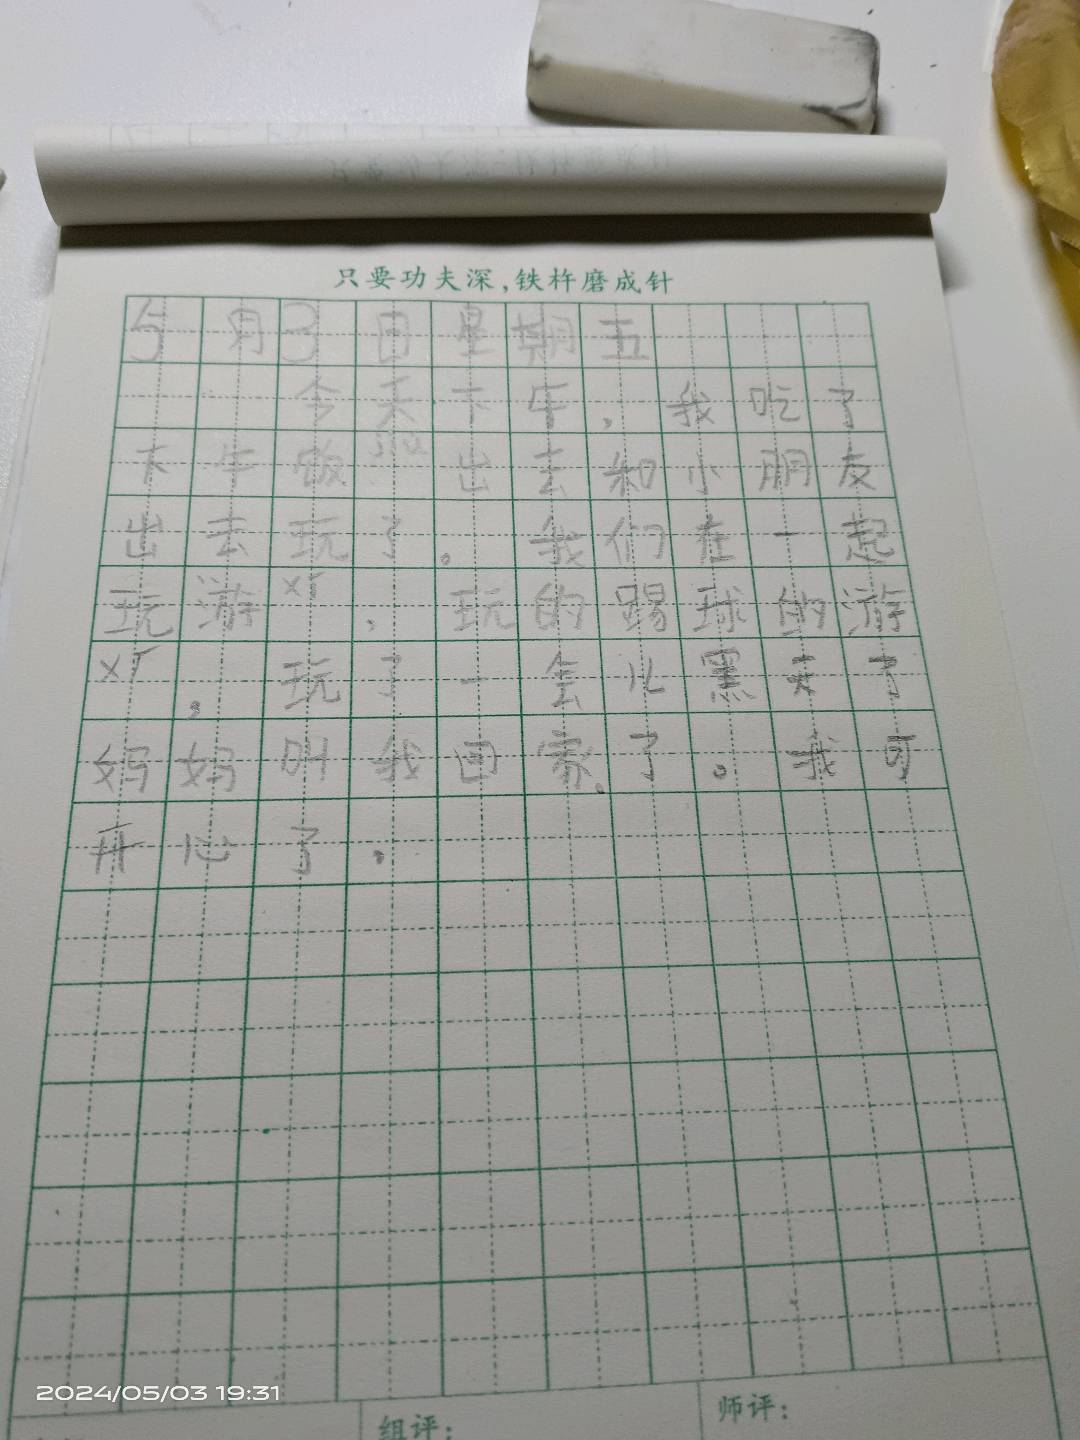 只要功夫深,铁杵磨成针
5月3日星期五
今天下午,我吃了
下午饭 出去和小朋友
出去玩了。我们在一起
玩游xì,玩的踢球的游
xì,玩了一会儿黑天了
妈妈叫我回家.了。我可
开心了。
2024/05/03 19:31
组评:
师评: